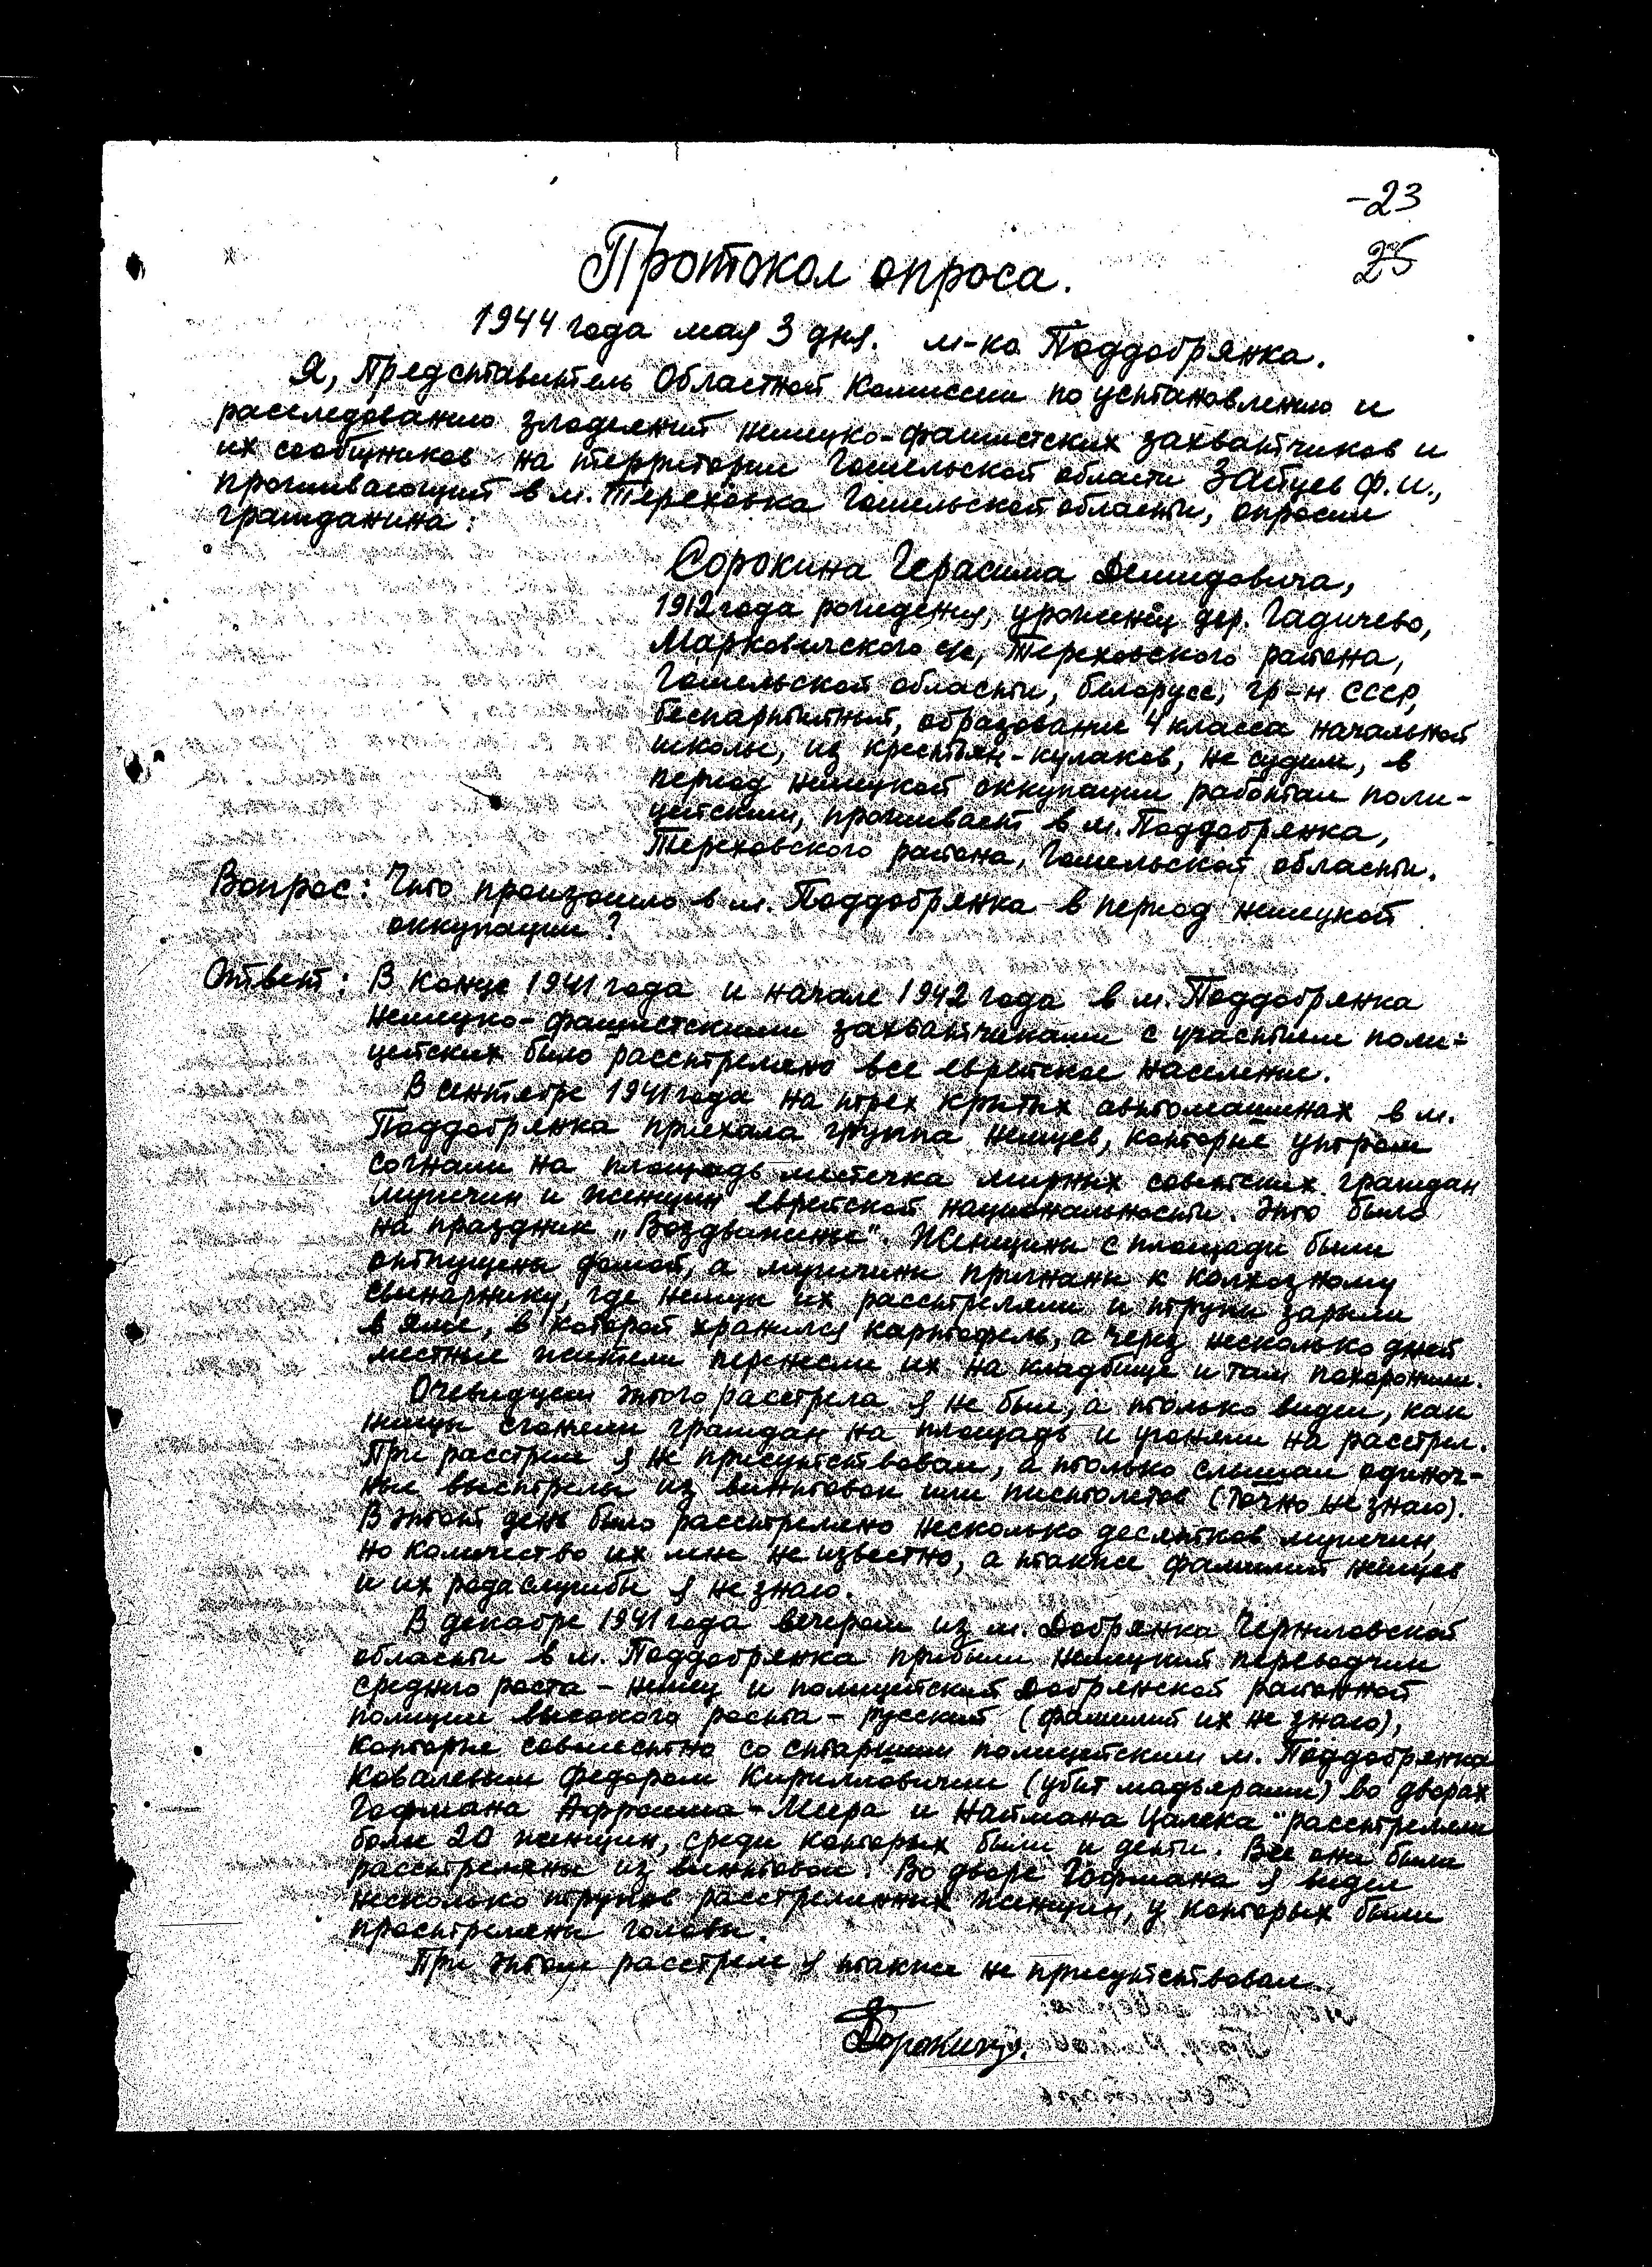 -23
25
Протокол опроса.
1944 года мая 3 дня. м-ко Поддобрянка.
Я, Представитель Областной Комиссии по установлению и
расследованию злодеяний немецко-фашистских захватчиков и
их сообщников на территории Гомельской области Зайцев Ф.И.,
проживающий в м. Тереховка Гомельской области, опросил
гражданина:
Сорокина Герасима Демидовича,
1912 года рождения, уроженец дер. Гадичево,
Марковичского с/с, Тереховского района,
Гомельской области, белорусс, гр-н СССР,
беспартийный, образование 4 класса начальной
школы, из крестьян-кулаков, не судим, в
период немецкой оккупации работал поли-
цейским, проживает в м. Поддобрянка,
Тереховского района, Гомельской области.
Вопрос: Что произошло в м. Поддобрянка в период немецкой
оккупации?
Ответ: В конце 1941 года и начале 1942 года в м. Поддобрянка
немецко-фашистскими захватчиками с участием поли-
цейских было расстреляно все еврейское население.
В сентябре 1941 года на трех крытых автомашинах в м.
Поддобрянка приехала группа немцев, которые утром
согнали на площадь местечка мирных советских граждан
мужчин и женщин еврейской национальности. Это было
на праздник „Воздвижение". Женщины с площади были
отпущены домой, а мужчины пригнаны к колхозному
свинарнику, где немцы их расстреляли и трупы зарыли
в яме, в которой хранился картофель, а через несколько дней
местные жители перенесли их на кладбище и там похоронили.
Очевидцем этого расстрела я не был, а только видел, как
немцы сгоняли граждан на площадь и угоняли на расстрел.
При расстреле я не присутствовал, а только слышал одиноч-
ные выстрелы из винтовок или пистолетов (точно не знаю).
В этот день было расстреляно несколько десятков мужчин,
но количество их мне не известно, а также фамилий немцев
и их рода службы я не знаю.
В декабре 1941 года вечером из м. Добрянка Черниговской
области в м. Поддобрянка прибыли немецкий переводчик
среднего роста - немец и полицейский Добрянской районной
полиции высокого роста - русский (фамилий их не знаю),
которые совместно со старшим полицейским м. Поддобрянка
Ковалевым Федором Кирилловичем (убит мадьярами) во дворах
Гофмана Афроима-Меера и Наймана Цалека расстреляли
более 20 женщин, среди которых были и дети. Все они были
расстреляны из винтовок. Во дворе Гофмана я видел
несколько трупов расстрелянных женщин, у которых были
прострелены головы.
При этом расстреле я также не присутствовал.